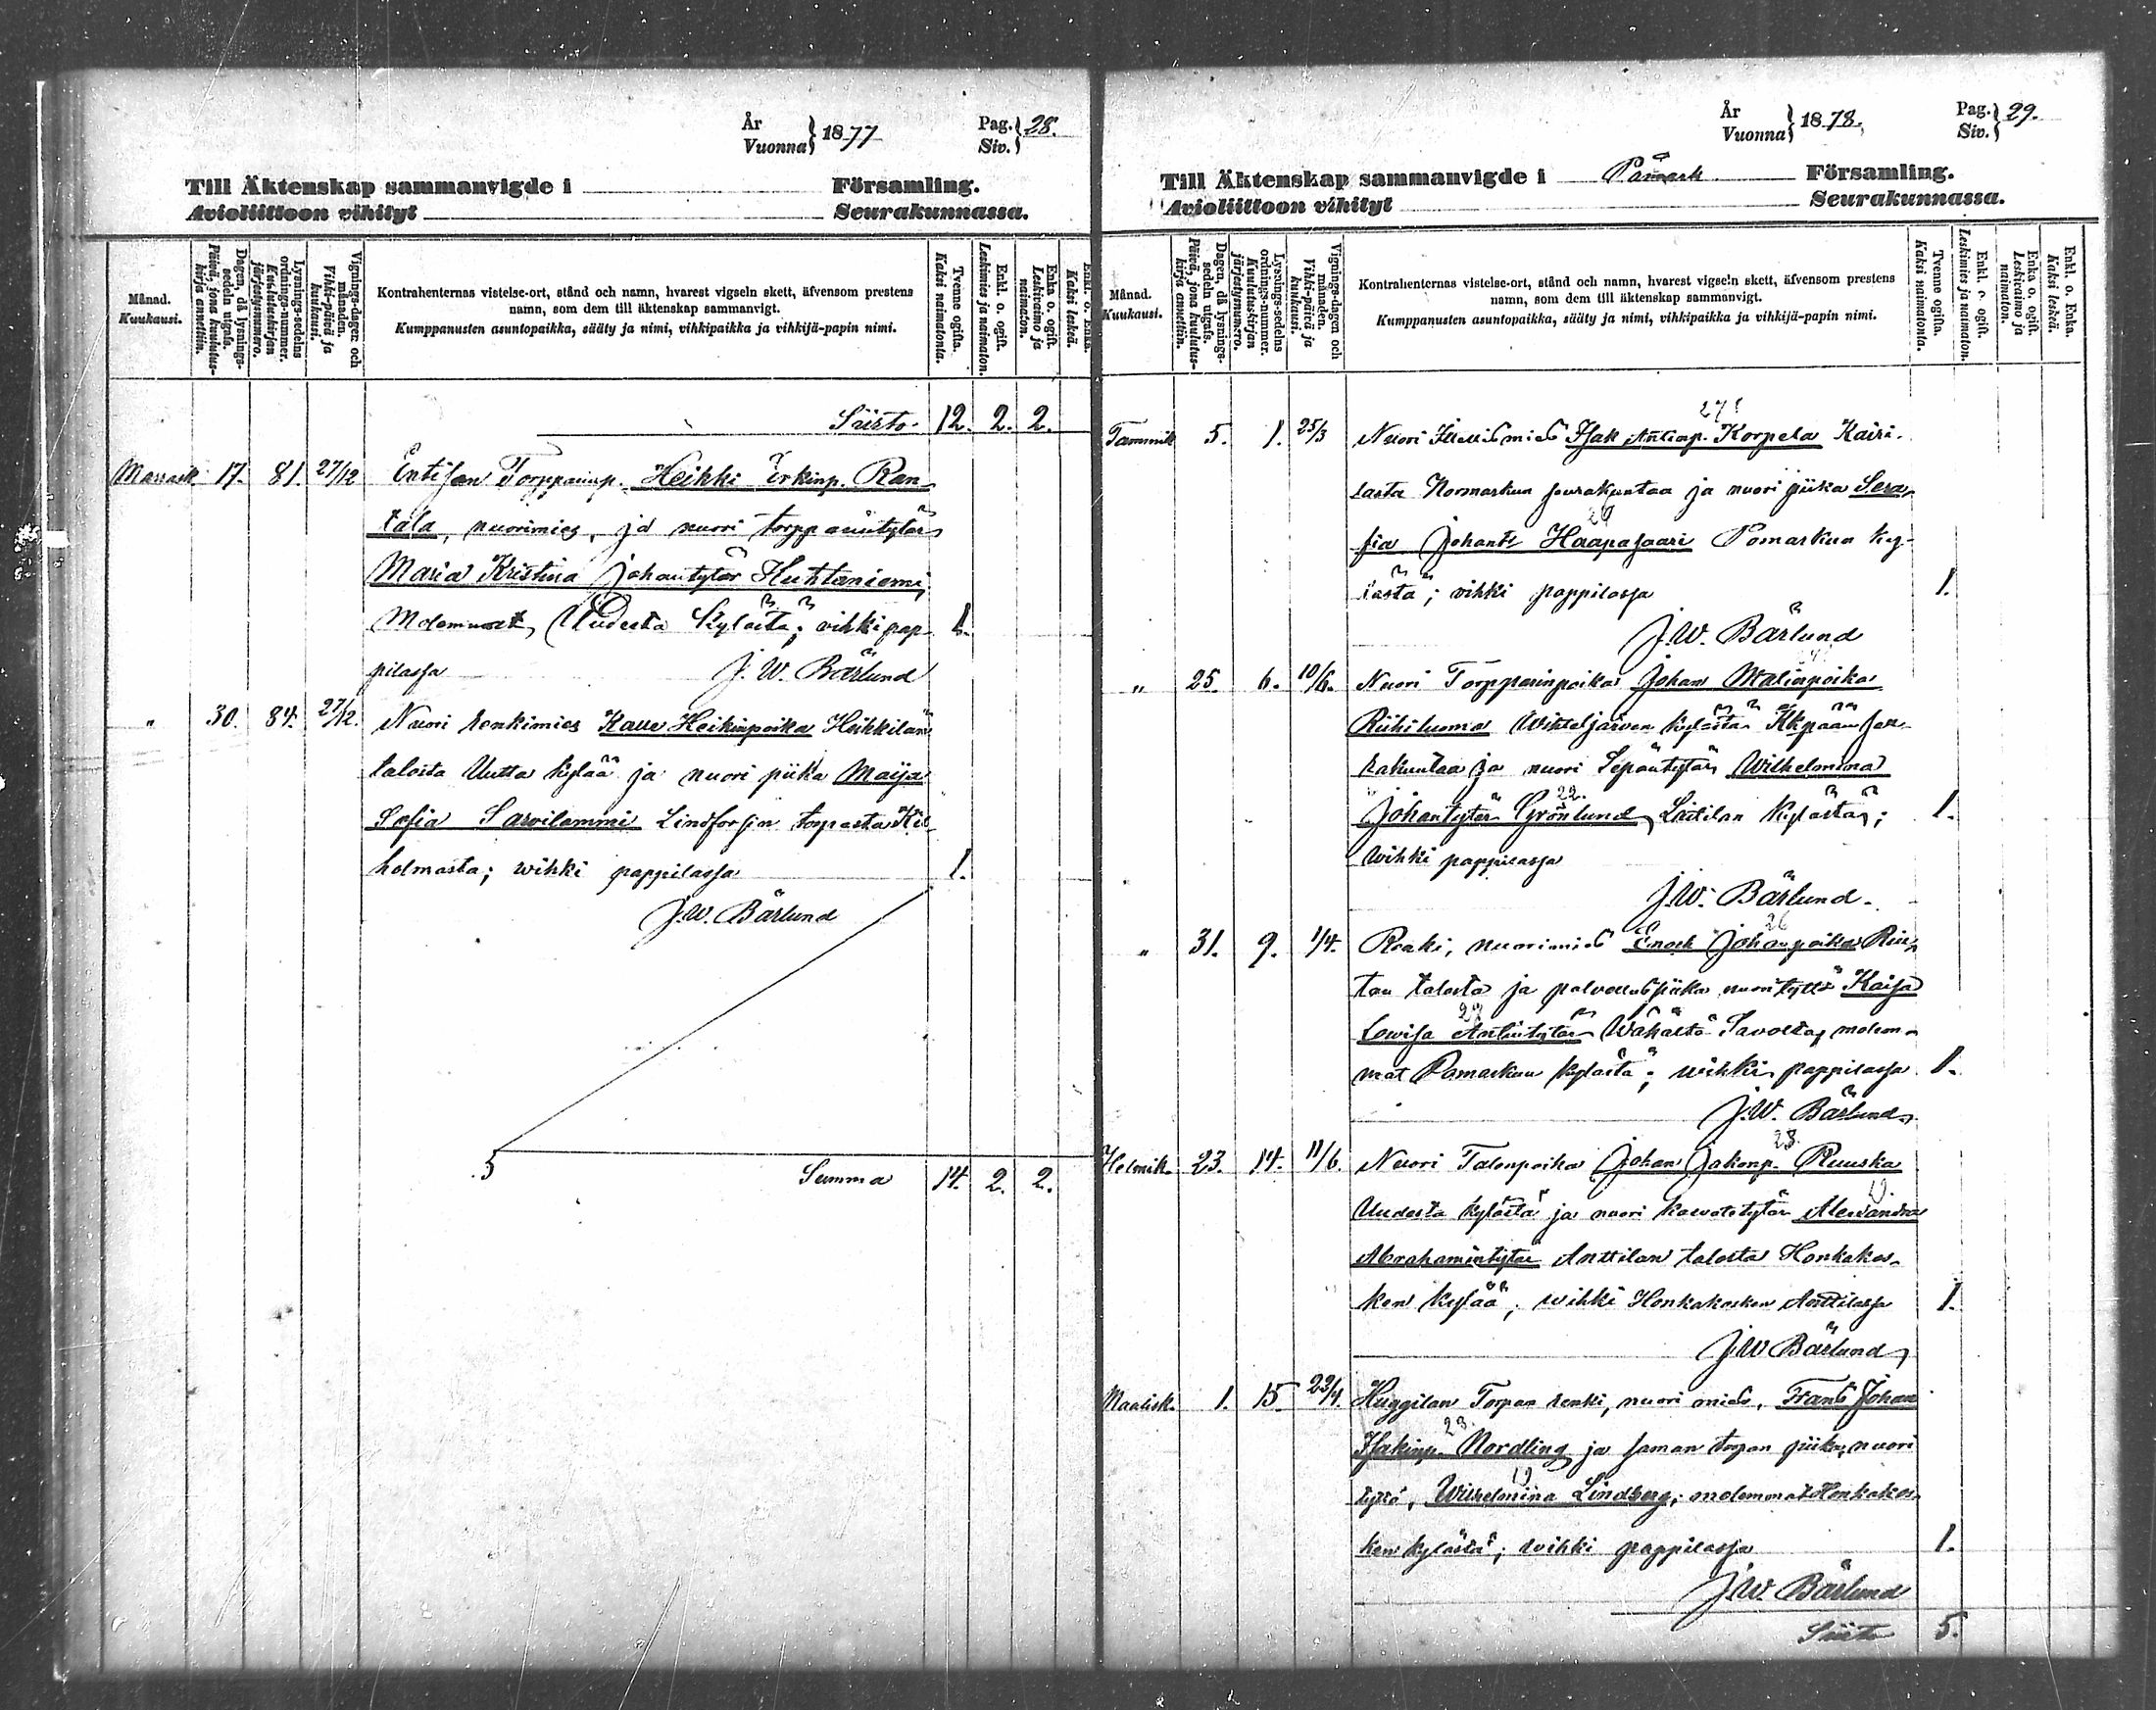 År
Vuonna} 1877 Pag. Siv.} 28.
Till Äktenskap sammanvigde i Församling.
Avioliittoon vihityt Seurakunnassa.
Månad. Kuukausi.
Dagen, då lysnings-sedeln utgafs. Päivä, jona kuulutus-kirja annettiin.
Lysnings-sedelns ordnings-nummer. Kuulutuskirjan järjestysnumero.
Vignings-dagen och månaden. Vihki-päivä ja kuukausi.
Kontrahenternas vistelse-ort, stånd och namn, hvarest vigseln skett, äfvensom prestens
namn, som dem till äktenskap sammanvigt.
Kumppanusten asuntopaikka, sääty ja nimi, vihkipaikka ja vihkijä-papin nimi.
Tvenne ogifta. Kaksi naimatonta.
Enkl. o. ogift. Leskimies ja naimaton.
Enka o. ogift. Leskivaimo ja naimaton.
Enkl. o. Enka. Kaksi leskeä.
Siirto 12. 2. 2.
Marrask. 17. 81. 27/12 Entisen Torpparinp. Heikki Erkinp. Ran-
tala, nuorimies, ja nuori torpparintytär
Maria Kristina Johantytär Huhtaniemi,
Molemmat Uudesta Kylästä; vihki pap- 1.
pilassa J. W. Bärlund
" 30. 84. 27/12. Nuori renkimies Kalle Heikinpoika Heikkilän
talosta Uutta kylää ja nuori piika Maija
Sofia Sarvilammi Lindforsin torpasta
holmasta; wihki pappilassa 1.
J. W. Bärlund
Summa 14. 2. 2.
År
Vuonna} 1878. Pag. Siv.} 29.
Till Äktenskap sammanvigde i Påmark Församling.
Avioliittoon vihityt Seurakunnassa.
Månad. Kuukausi.
Dagen, då lysnings-sedeln utgafs. Päivä, jona kuulutus-kirja annettiin.
Lysnings-sedelns ordnings-nummer. Kuulutuskirjan järjestysnumero.
Vignings-dagen och månaden. Vihki-päivä ja kuukausi.
Kontrahenternas vistelse-ort, stånd och namn, hvarest vigseln skett, äfvensom prestens
namn, som dem till äktenskap sammanvigt.
Kumppanusten asuntopaikka, sääty ja nimi, vihkipaikka ja vihkijä-papin nimi.
Tvenne ogifta. Kaksi naimatonta.
Enkl. o. ogift. Leskimies ja naimaton.
Enka o. ogift. Leskivaimo ja naimaton.
Enkl. o. Enka. Kaksi leskeä.
27
Tammik. 5. 1. 25/3 Nuori Itellismies Isak Antinp. Korpela Kairi-
lasta Normarkun seurakuntaa ja nuori piika Sera-
26
fia Johant. Haapasaari Pomarkun ky-
lästä; vihki pappilassa 1.
J. W. Bärlund
" 25. 6. 10/6. Nuori Torpparinpoika Johan Matinpoika
Riihiluoma Wihteljärven kylästä Kkpään seu-
rakuntaa ja nuori Sepäntytär Wilhelmina
22.
Johantytär Grönlund Laitilan Kylästä; 1.
Wihki pappilassa
J. W. Bärlund.
26
" 31. 9. 1/4. Renki, nuorimies Enock Johanpoika
tan talosta ja palvelluspiika nuori tyttö Kaisa
27
Lowisa Antintytär Wähästä Savosta, molem-
mat Pomarkun kylästä; wihki pappilassa 1.
J. W. Bärlund
23.
Helmik. 23. 14. 11/6. Nuori Talonpoika Johan Jakonp. Ruuska
19.
Uudesta kylästä ja nuori kasvatetytär Alexandra
Abrahamintytär Anttilan talosta Honkakos-
ken kylää; wihki Honkakosken Anttilassa 1.
J. W. Bärlund
Maalisk. 1. 15. 22/4. Huggilan Torpan renki, nuori mies, Frans Johan
23.
Isakinp. Nordling ja saman torpan piika, nuori
19
tyttö, Wilhelmina Lindberg, molemmat Honkakos-
ken kylästä; wihki pappilassa 1.
J. W. Bärlund
Siirto 5.